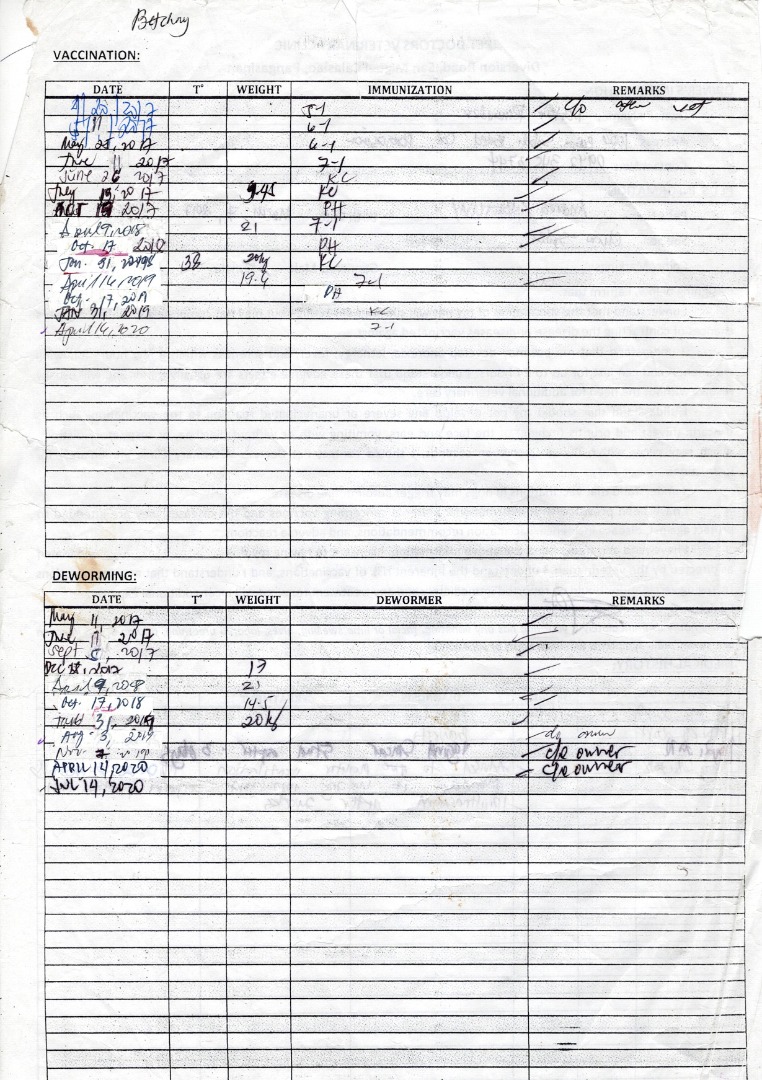 Betchny
VACCINATION:
DATE T° WEIGHT IMMUNIZATION REMARKS
4 | 20 | 2017 5-1 / c/o other vet
11 2017 6-1 /
May 25, 2017 6-1 /
June 11 2017 7-1 /
June 26 2017 KC /
July 13, 2017 9.45 KC /
OCT 19 2017 PH /
April 9, 2018 21 7-1 /
Oct. 17 2018 PH /
Jan. 31, 2019 38 20kg KC /
April 14, 2019 19.4 7-1 /
Oct. 17, 2019 PH
JAN 31, 2019 KC
April 14, 2020 7-1
DEWORMING:
DATE T° WEIGHT DEWORMER REMARKS
May 11, 2017 /
June 11 2017 /
Sept 5, 2017 /
Dec 2017 17 /
April 9, 2018 21 /
Oct. 17, 2018 14.5 /
31, 2019 20kg /
Aug. 3, 2019 c/o owner
Nov. 7 - c/o owner
APRIL 14, 2020 - c/o owner
JUL 14, 2020